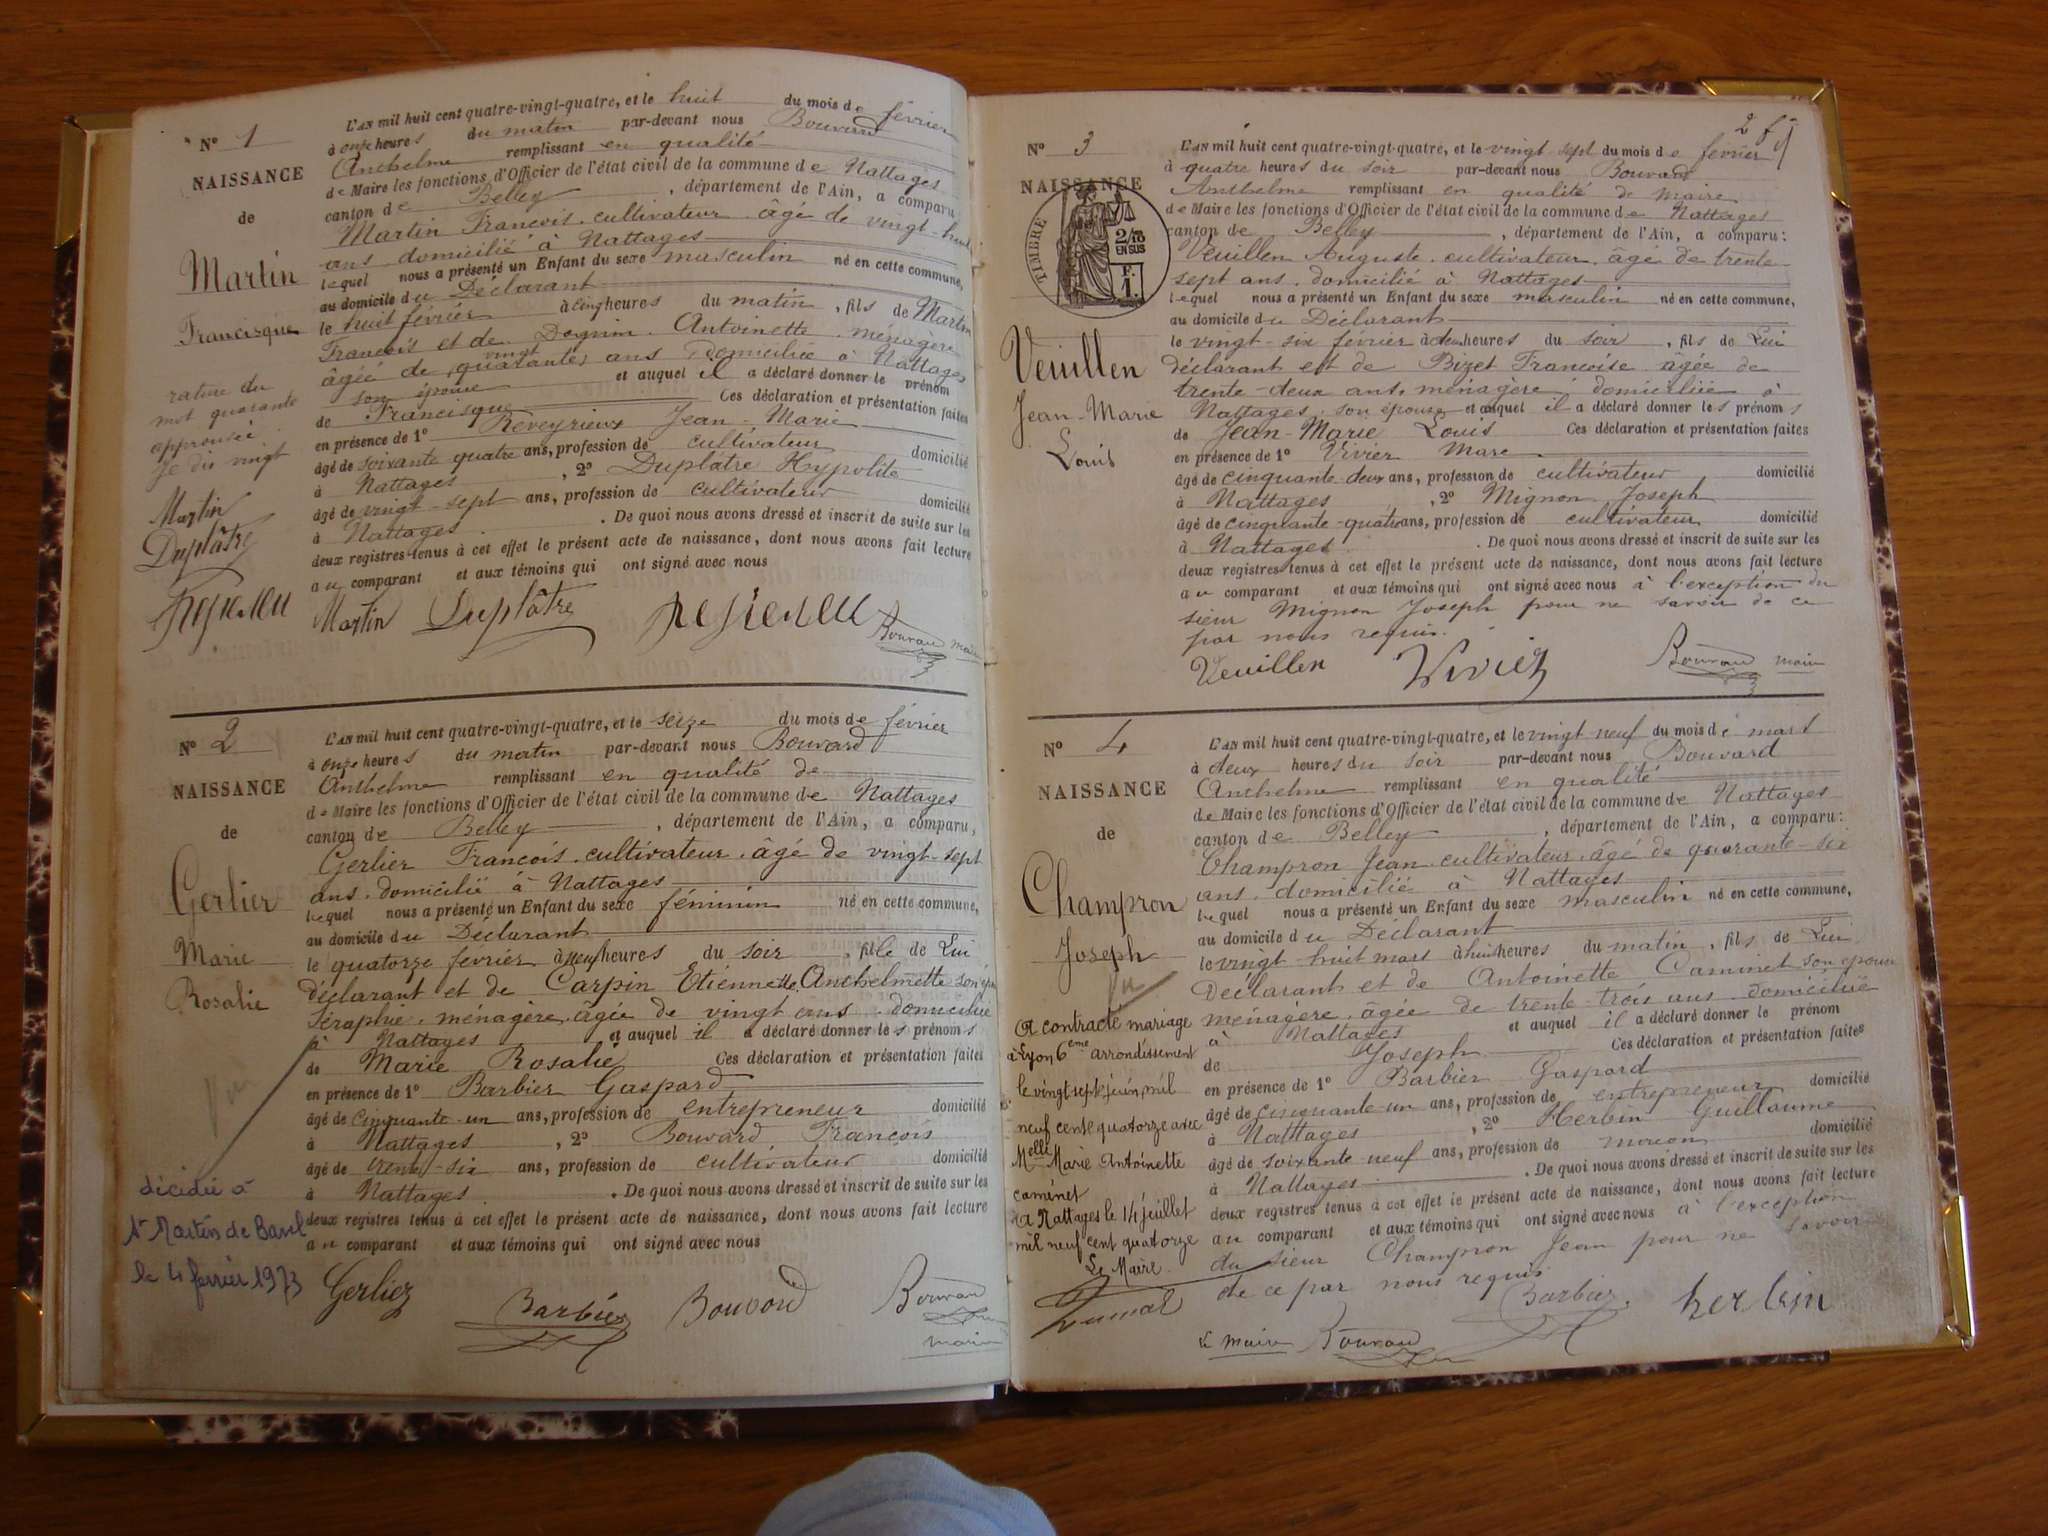 N° 1
NAISSANCE
de
Martin
Francisque
rature du
mot quarante
approuvée
je dis vingt
Martin
Duplâtre
L'AN mil huit cent quatre-vingt-quatre, et le huit du mois de février
à onze heures du matin par-devant nous Bouvard
Anthelme remplissant en qualité
de Maire les fonctions d'Officier de l'état civil de la commune de Nattages
canton de Belley, département de l'Ain, a comparu
Martin François, cultivateur, âgé de vingt-huit
ans, domicilié à Nattages
lequel nous a présenté un Enfant du sexe masculin né en cette commune,
au domicile du Déclarant
le huit février à cinq heures du matin, fils de Martin
François et de Antoinette, ménagère
âgée de quarante vingt ans domiciliée à Nattages
son épouse et auquel il a déclaré donner le prénom
de Francisque Ces déclaration et présentation faites
en présence de 1° Reveyrieux Jean-Marie
âgé de soixante quatre ans, profession de cultivateur domicilié
à Nattages, 2° Duplâtre Hypolite
âgé de vingt-sept ans, profession de cultivateur domicilié
à Nattages. De quoi nous avons dressé et inscrit de suite sur les
deux registres tenus à cet effet le présent acte de naissance, dont nous avons fait lecture
au comparant et aux témoins qui ont signé avec nous
Martin Duplâtre Bouvard maire
N° 2
NAISSANCE
de
Gerlier
Marie
Rosalie
Vu
décédée à
St Martin de Bavel
le 4 février 1973
L'AN mil huit cent quatre-vingt-quatre, et le seize du mois de février
à onze heures du matin par-devant nous Bouvard
Anthelme remplissant en qualité de
de Maire les fonctions d'Officier de l'état civil de la commune de Nattages
canton de Belley, département de l'Ain, a comparu,
Gerlier François, cultivateur, âgé de vingt-sept
ans, domicilié à Nattages
lequel nous a présenté un Enfant du sexe féminin né en cette commune,
au domicile du Déclarant
le quatorze février à neuf heures du soir, fille de Lui
déclarant et de Carpin Etiennette Anthelmette son
Séraphie, ménagère, âgée de vingt ans, domiciliée
à Nattages et auquel il a déclaré donner les prénoms
de Marie Rosalie Ces déclaration et présentation faites
en présence de 1° Barbier Gaspard
âgé de cinquante-un ans, profession de entrepreneur domicilié
à Nattages, 2° Bouvard, François
âgé de trente-six ans, profession de cultivateur domicilié
à Nattages. De quoi nous avons dressé et inscrit de suite sur les
deux registres tenus à cet effet le présent acte de naissance, dont nous avons fait lecture
au comparant et aux témoins qui ont signé avec nous
Gerlier Barbier Bouvard Bouvard
maire
2
N° 3
NAISSANCE
TIMBRE
2/10
EN SUS
F.
1.
Veuillen
Jean-Marie
Louis
L'AN mil huit cent quatre-vingt-quatre, et le vingt sept du mois de février
à quatre heures du soir par-devant nous Bouvard
Anthelme remplissant en qualité de maire
de Maire les fonctions d'Officier de l'état civil de la commune de Nattages
canton de Belley, département de l'Ain, a comparu:
Veuillen Auguste, cultivateur, âgé de trente
sept ans, domicilié à Nattages
lequel nous a présenté un Enfant du sexe masculin né en cette commune,
au domicile du Déclarant
le vingt-six février à deux heures du soir, fils de Lui
déclarant et de Bizet Françoise âgée de
trente-deux ans, ménagère, domiciliée à
Nattages, son épouse et auquel il a déclaré donner les prénoms
de Jean-Marie Louis Ces déclaration et présentation faites
en présence de 1° Vivier Marc
âgé de cinquante-deux ans, profession de cultivateur domicilié
à Nattages, 2° Mignon Joseph
âgé de cinquante-quatre ans, profession de cultivateur domicilié
à Nattages. De quoi nous avons dressé et inscrit de suite sur les
deux registres tenus à cet effet le présent acte de naissance, dont nous avons fait lecture
au comparant et aux témoins qui ont signé avec nous à l'exception du
sieur Mignon Joseph pour ne savoir de ce
par nous requis.
Veuillen Vivier Bouvard maire
N° 4
NAISSANCE
de
Champron
Joseph
Vu
A contracté mariage
à Lyon 6eme arrondissement
le vingt sept juin mil
neuf cent quatorze avec
Melle Marie Antoinette
Caminet
A Nattages le 14 juillet
mil neuf cent quatorze
Le Maire
L'AN mil huit cent quatre-vingt-quatre, et le vingt neuf du mois de mars
à deux heures du soir par-devant nous Bouvard
Anthelme remplissant en qualité
de Maire les fonctions d'Officier de l'état civil de la commune de Nattages
canton de Belley, département de l'Ain, a comparu:
Champron Jean, cultivateur, âgé de quarante-six
ans, domicilié à Nattages
lequel nous a présenté un Enfant du sexe masculin né en cette commune,
au domicile du Déclarant
le vingt-huit mars à huit heures du matin, fils de Lui
Déclarant et de Antoinette Caminet son épouse
ménagère, âgée de trente-trois ans, domiciliée
à Nattages et auquel il a déclaré donner le prénom
de Joseph Ces déclaration et présentation faites
en présence de 1° Barbier Gaspard
âgé de cinquante-un ans, profession de entrepreneur domicilié
à Nattages, 2° Herbin Guillaume
âgé de soixante-neuf ans, profession de domicilié
à Nattages. De quoi nous avons dressé et inscrit de suite sur les
deux registres tenus à cet effet le présent acte de naissance, dont nous avons fait lecture
au comparant et aux témoins qui ont signé avec nous à l'exception
du sieur Champron Jean pour ne savoir
de ce par nous requis
Barbier herbin
Le maire Bouvard